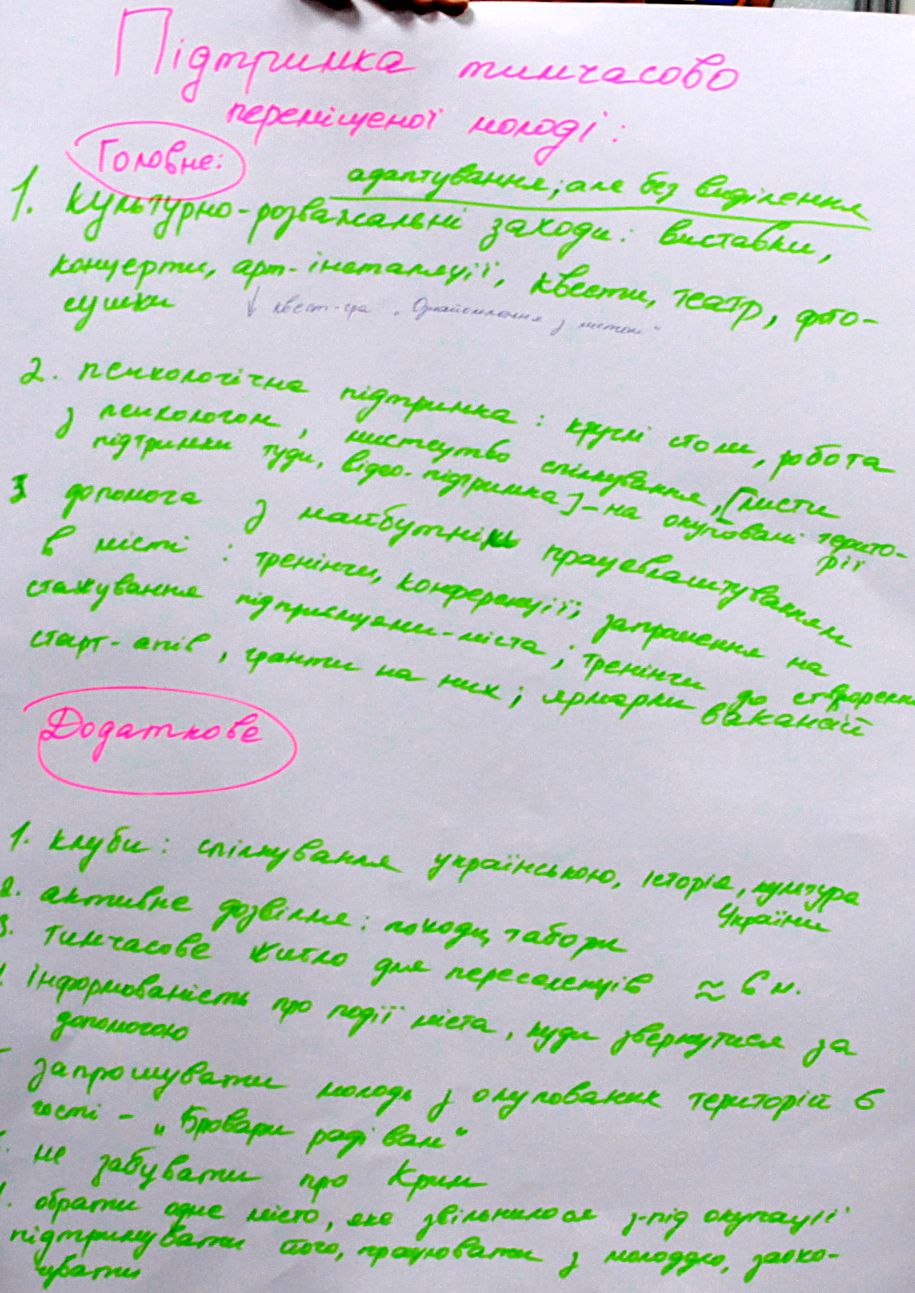 Підтримка тимчасово
переміщеної молоді:
Головне:
адаптування; але без виділення
1. культурно-розважальні заходи: виставки,
концерти, арт-інсталяції, квести, театр, фото-
сушки
↓ квест-гра „Ознайомлення з містом“
2. психологічна підтримка: круглі столи, робота
з психологом, мистецтво спілкування, [листи
підтримки туди, відео-підтримка] - на окуповані терито-
рії
3 допомога з майбутнім працевлаштуванням
в місті: тренінги, конференції, запрошення на
стажування підприємцями-міста; тренінги до створення
старт-апів, гранти на них; ярмарки вакансій
Додаткове
1. клуби: спілкування українською, історія, культура
України
2. активне дозвілля: походи, табори
3. тимчасове житло для переселенців ≈ 6 м.
інформованість про події міста, куди звернутися за
допомогою
запрошувати молодь з окупованих територій в
гості - „Бровари раді вам“
не забувати про Крим
обрати одне місто, яке звільнилося з-під окупації
підтримувати його, працювати з молоддю, заохо-
чувати